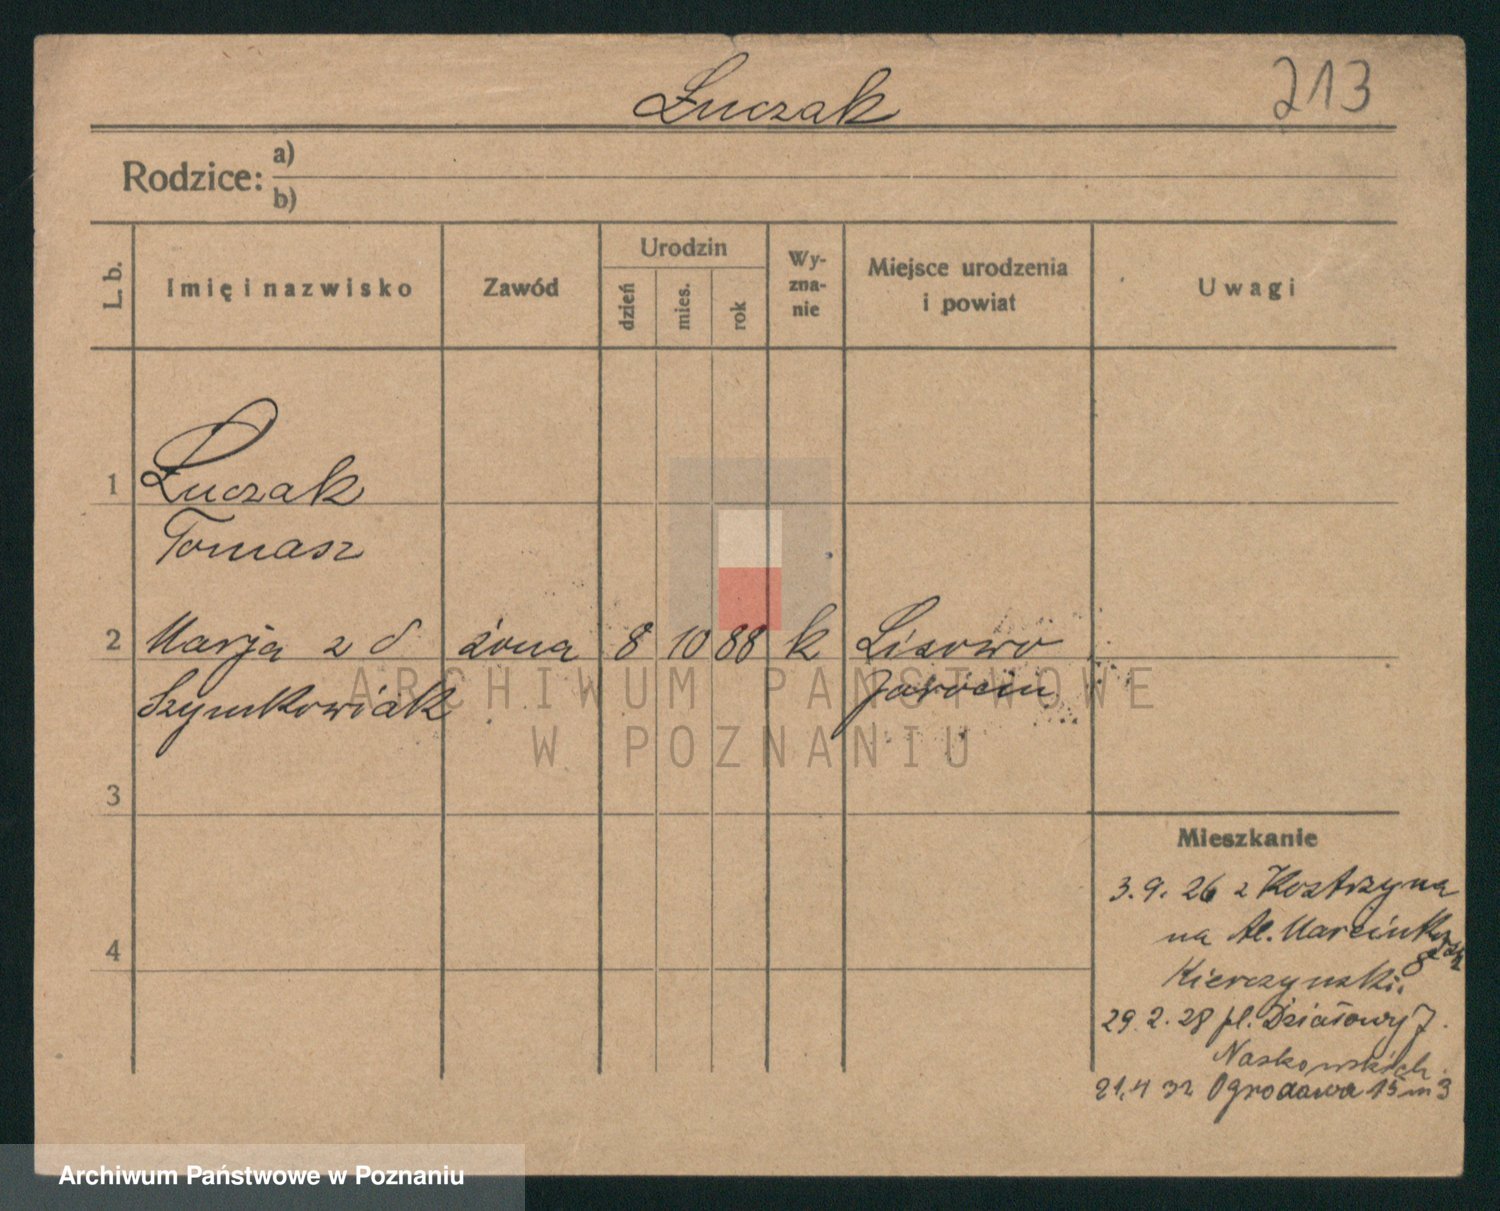 Łuczak
213
Rodzice:
a)
b)
L. b.
Imię i nazwisko
Zawód
Urodzin
dzień
mies.
rok
Wy-
zna-
nie
Miejsce urodzenia
i powiat
Uwagi
1
Łuczak
Tomasz
2
Marja z d
żona
8
10
88
k
Lisowo
Szymkowiak
Jarocin
3
4
Mieszkanie
3. 9. 26 z Kostrzyna
na Al. Marcinkowsk
8
Kierczynski.
29. 2. 28 pl. Działowy 7.
Naskowskich.
21. 4 32 Ogrodowa 15 m 3
ARCHIWUM PAŃSTWOWE
W POZNANIU
Archiwum Państwowe w Poznaniu